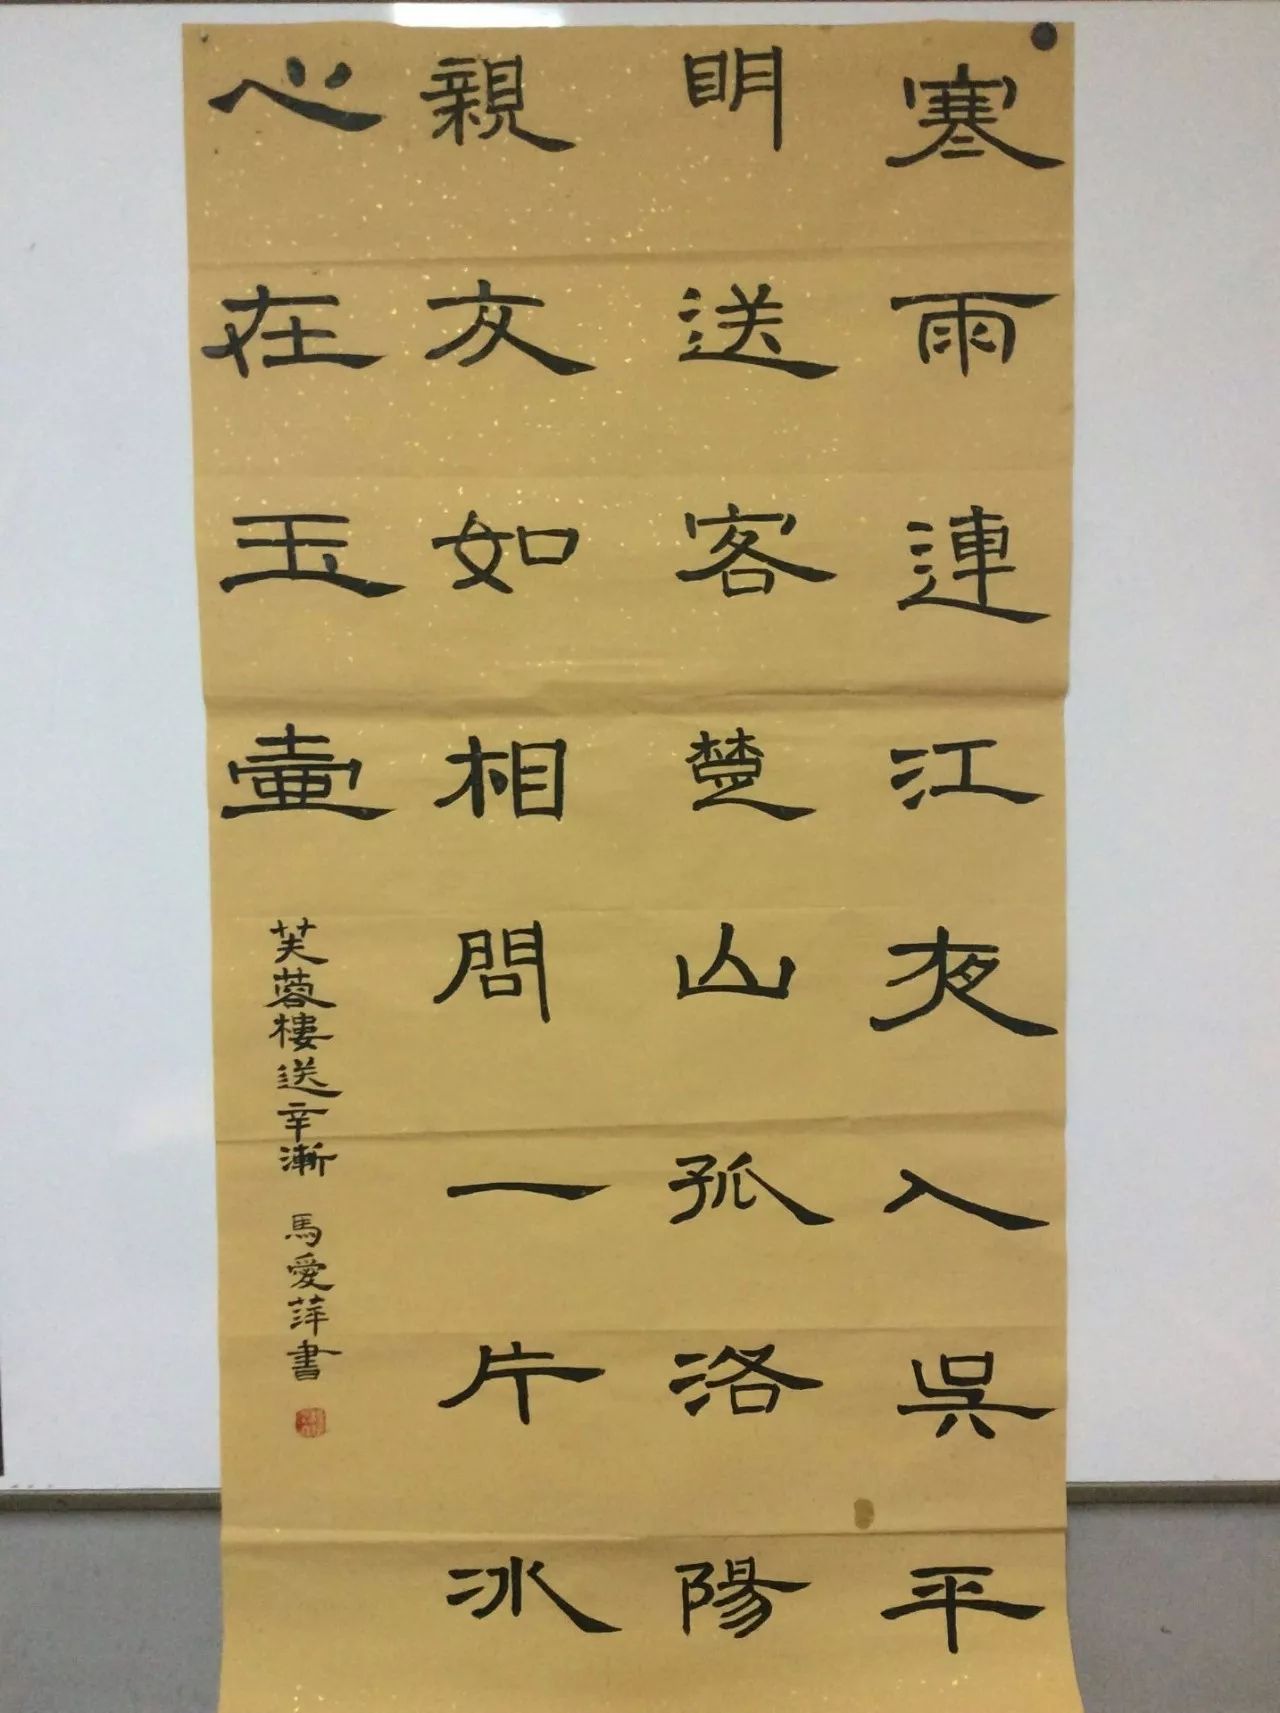 寒雨連江夜入吳平
明送客楚山孤洛陽
親友如相問一片冰
心在玉壺
芙蓉樓送辛漸 馬愛萍書